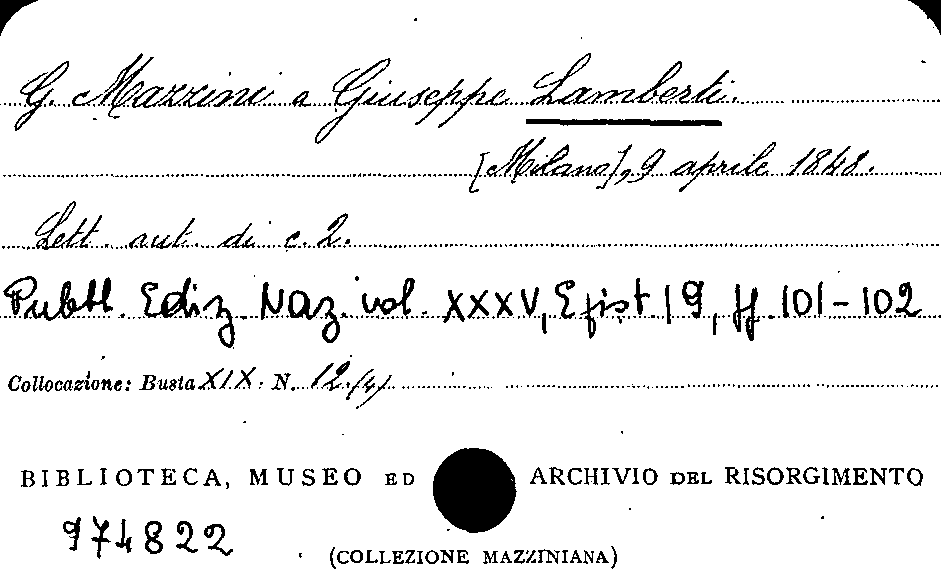 G. Mazzini a Giuseppe Lamberti.
[Milano], 9 aprile 1848.
Lett. aut. di c. 2.
Pubbl. Ediz. Naz. vol. XXXV, Epist. 19, pp. 101-102
Collocazione: Busta XIX. N. 12/(4)
BIBLIOTECA, MUSEO ED ARCHIVIO DEL RISORGIMENTO
974822
(COLLEZIONE MAZZINIANA)